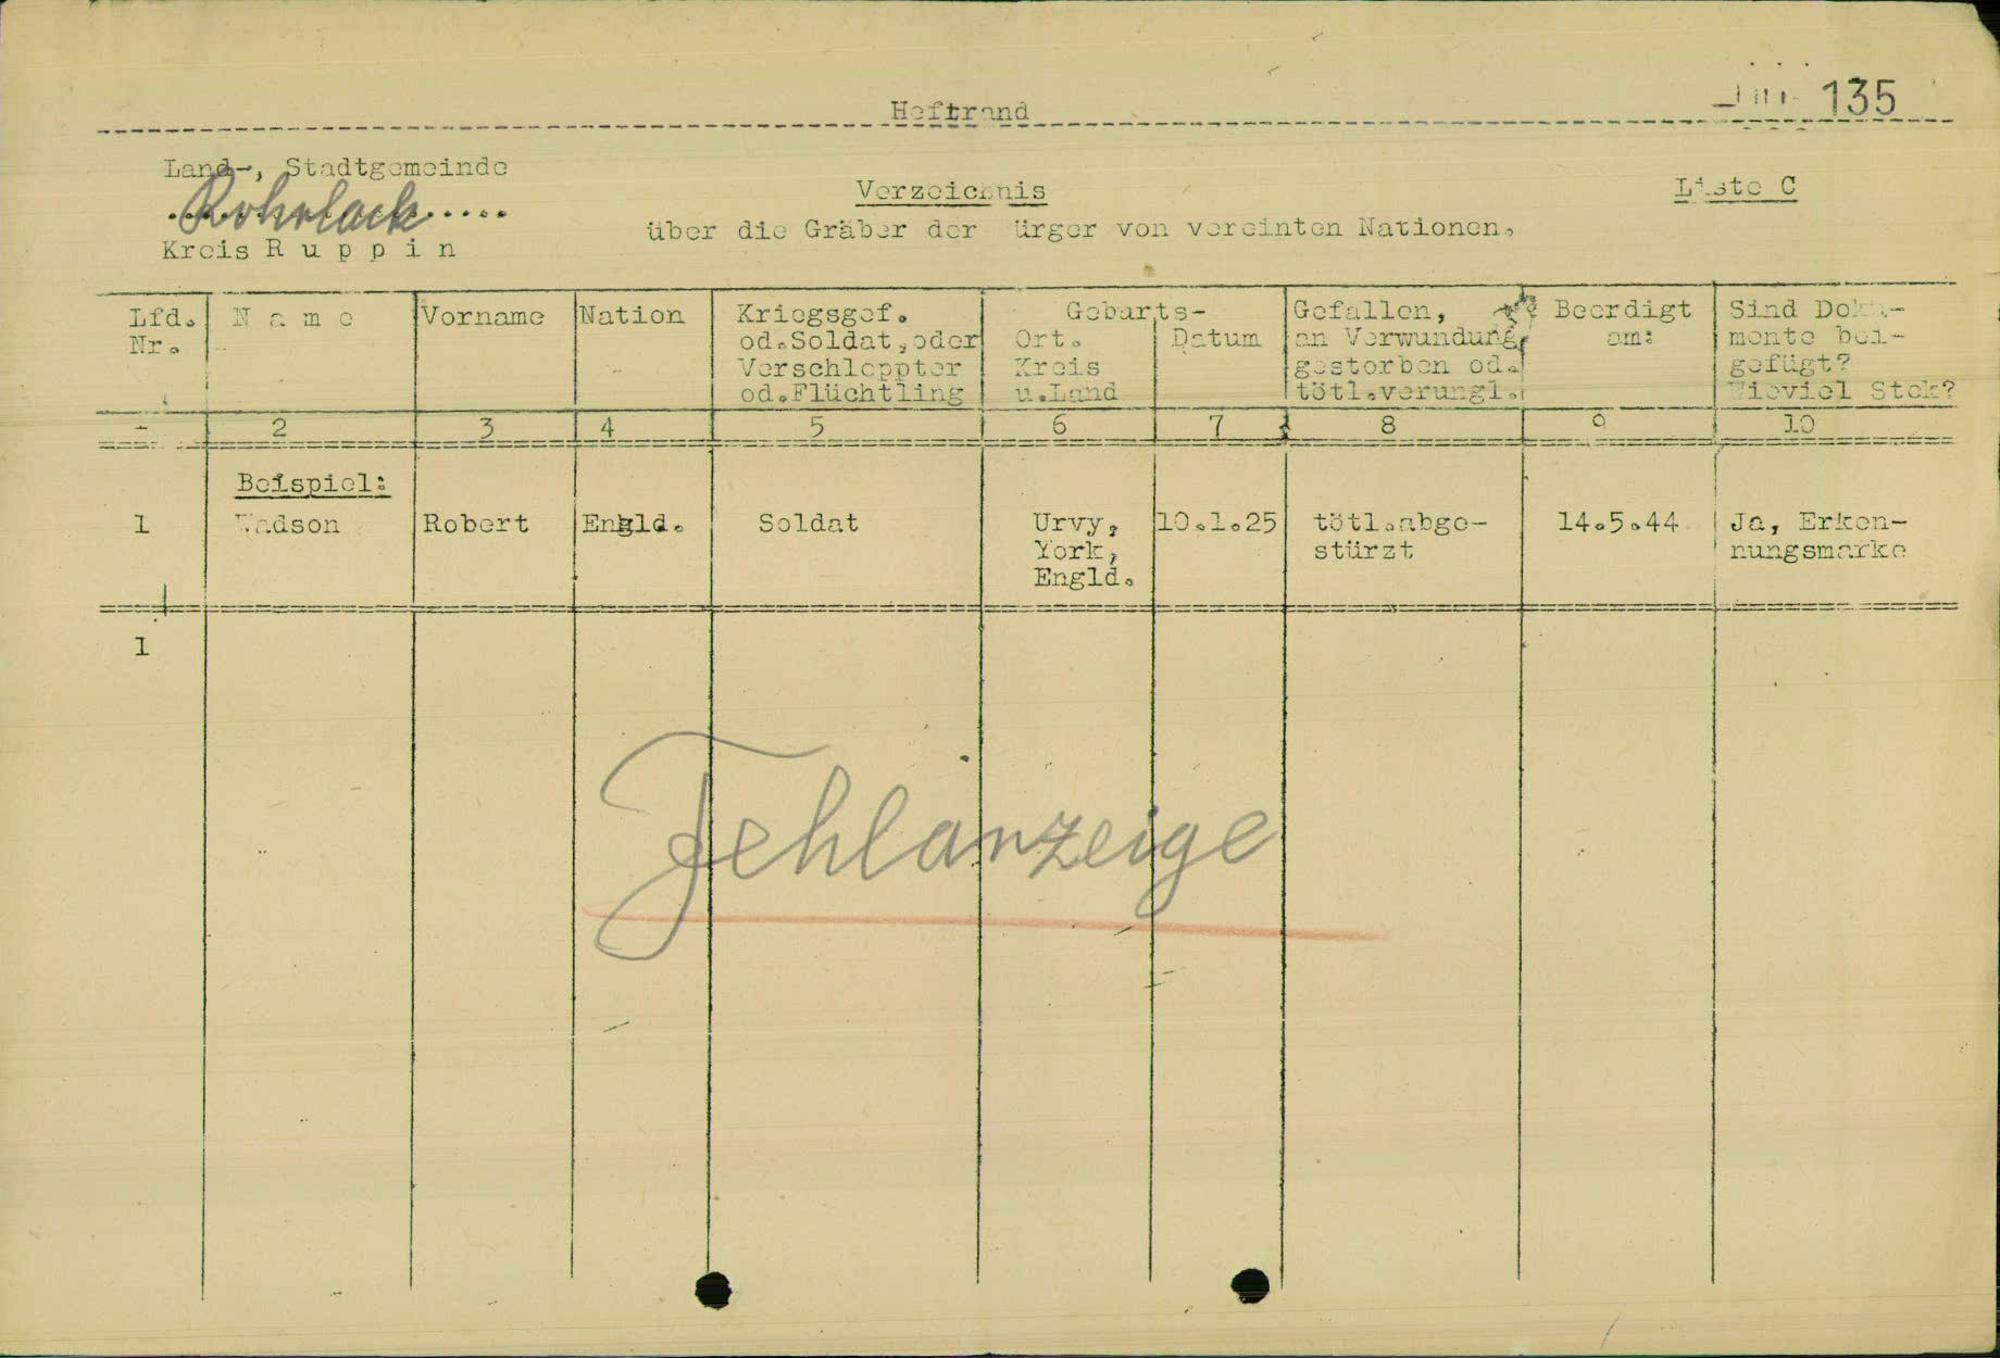 Heftrand
135
Land-, Stadtgemeinde
Rohrlack
Kreis R u p p i n
Verzeichnis
Liste C
über die Gräber der ürger von vereinten Nationen.
Lfd. Nr.
N a m e
Vorname
Nation
Kriegsgef.
od.Soldat,oder
Verschleppter
od.Flüchtling
Geburts-
Ort. Datum
Kreis
u.Land
Gefallen,
an Verwundung
gestorben od.
tötl.verungl.
Beerdigt
am:
Sind Doku-
mente bei-
gefügt?
Wieviel Stck?
- 2 3 4 5 6 7 8 9 10
Beispiel:
1 Wadson Robert Engld. Soldat Urvy, 10.1.25 tötl.abge- 14.5.44 Ja, Erken-
York, stürzt nungsmarke
Engld.
1
Fehlanzeige